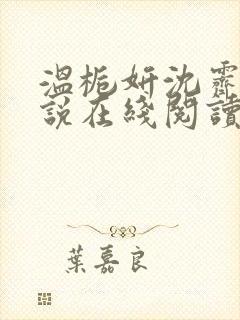 温栀妍沈霽
説在綫閲讀
葉嘉良